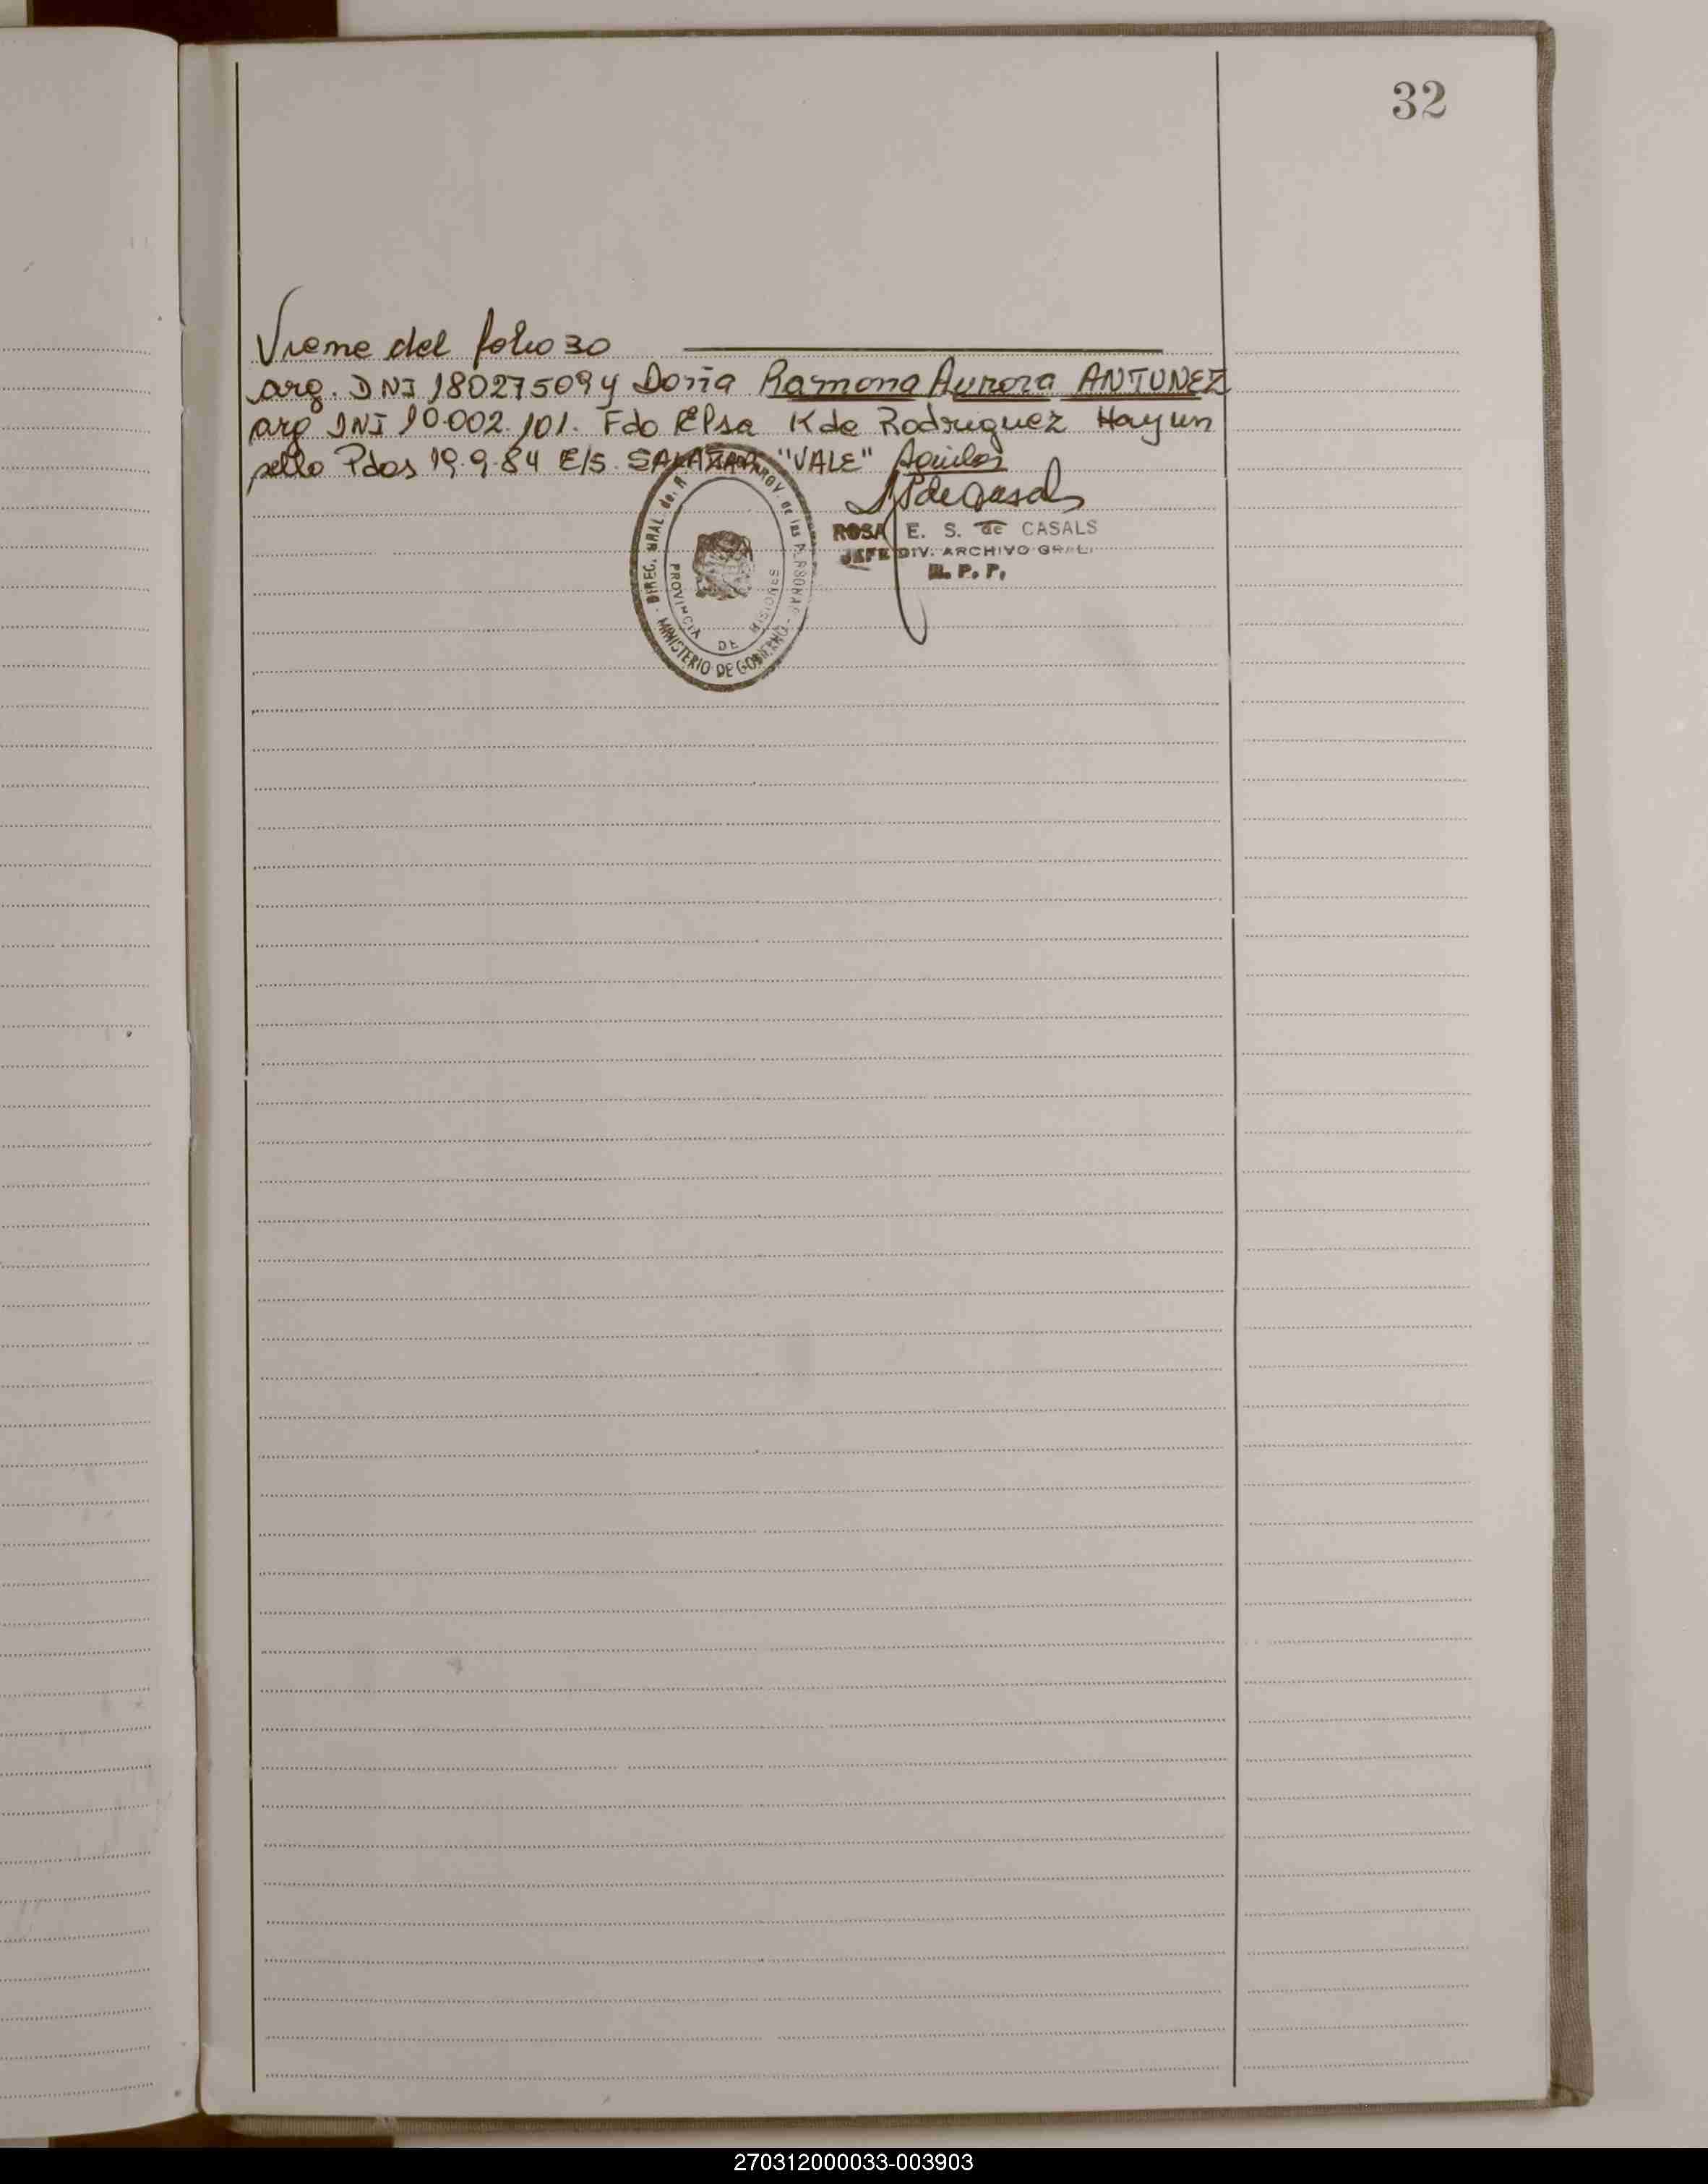 32
Viene del folio 30
arg. DNI 18027509 y Doña Ramona Aurora ANTUNEZ
arg DNI 10.002.101. Fdo Elsa K de Rodriguez Hay un
sello Pdas 19.9.84 E/S. SALAZAR "VALE" Aguilar
ROSA E. S. de CASALS
JEFE DIV. ARCHIVO GRAL.
R. P. P.
DIREC. GRAL. de. PROV. de las PERSONAS
MINISTERIO DE GOBIERNO
PROVINCIA DE MISIONES
270312000033-003903